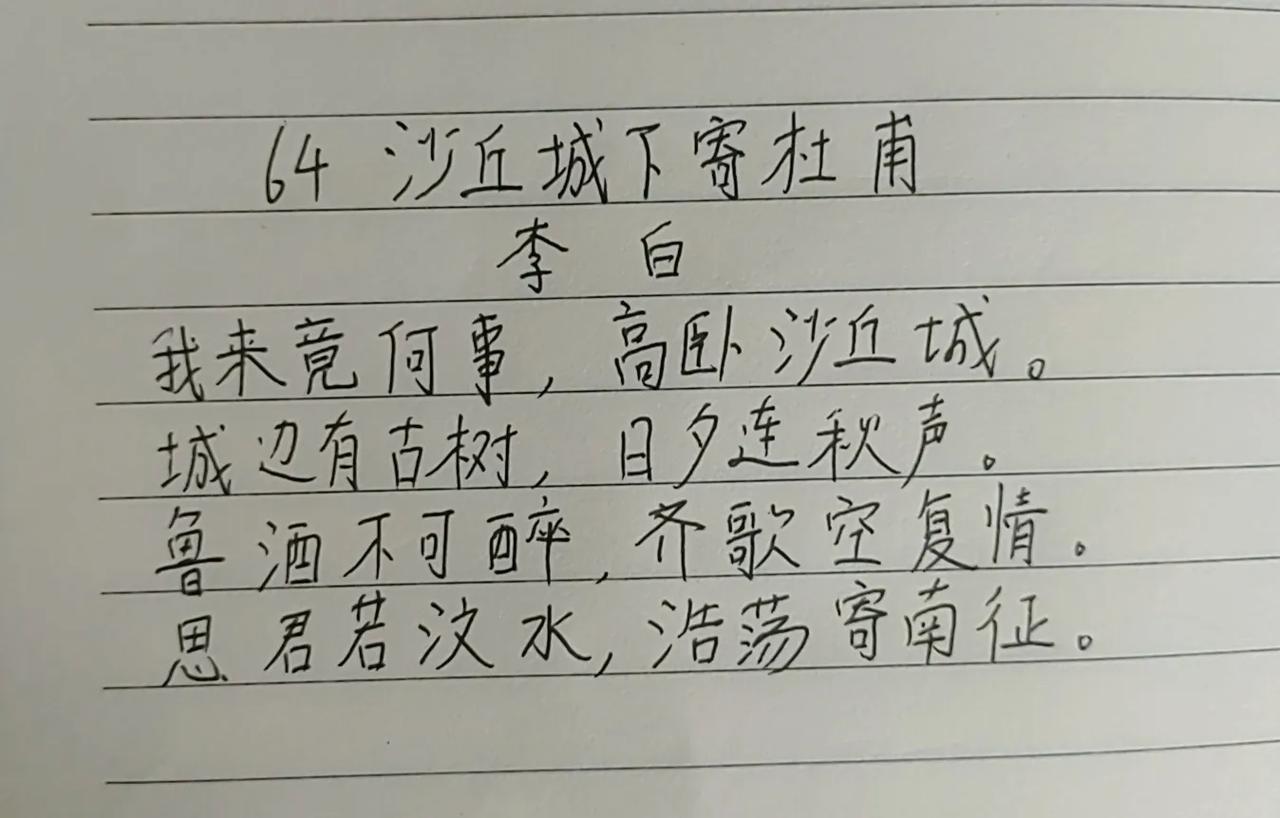 64 沙丘城下寄杜甫
李 白
我来竟何事,高卧沙丘城。
城边有古树,日夕连秋声。
鲁酒不可醉,齐歌空复情。
思君若汶水,浩荡寄南征。